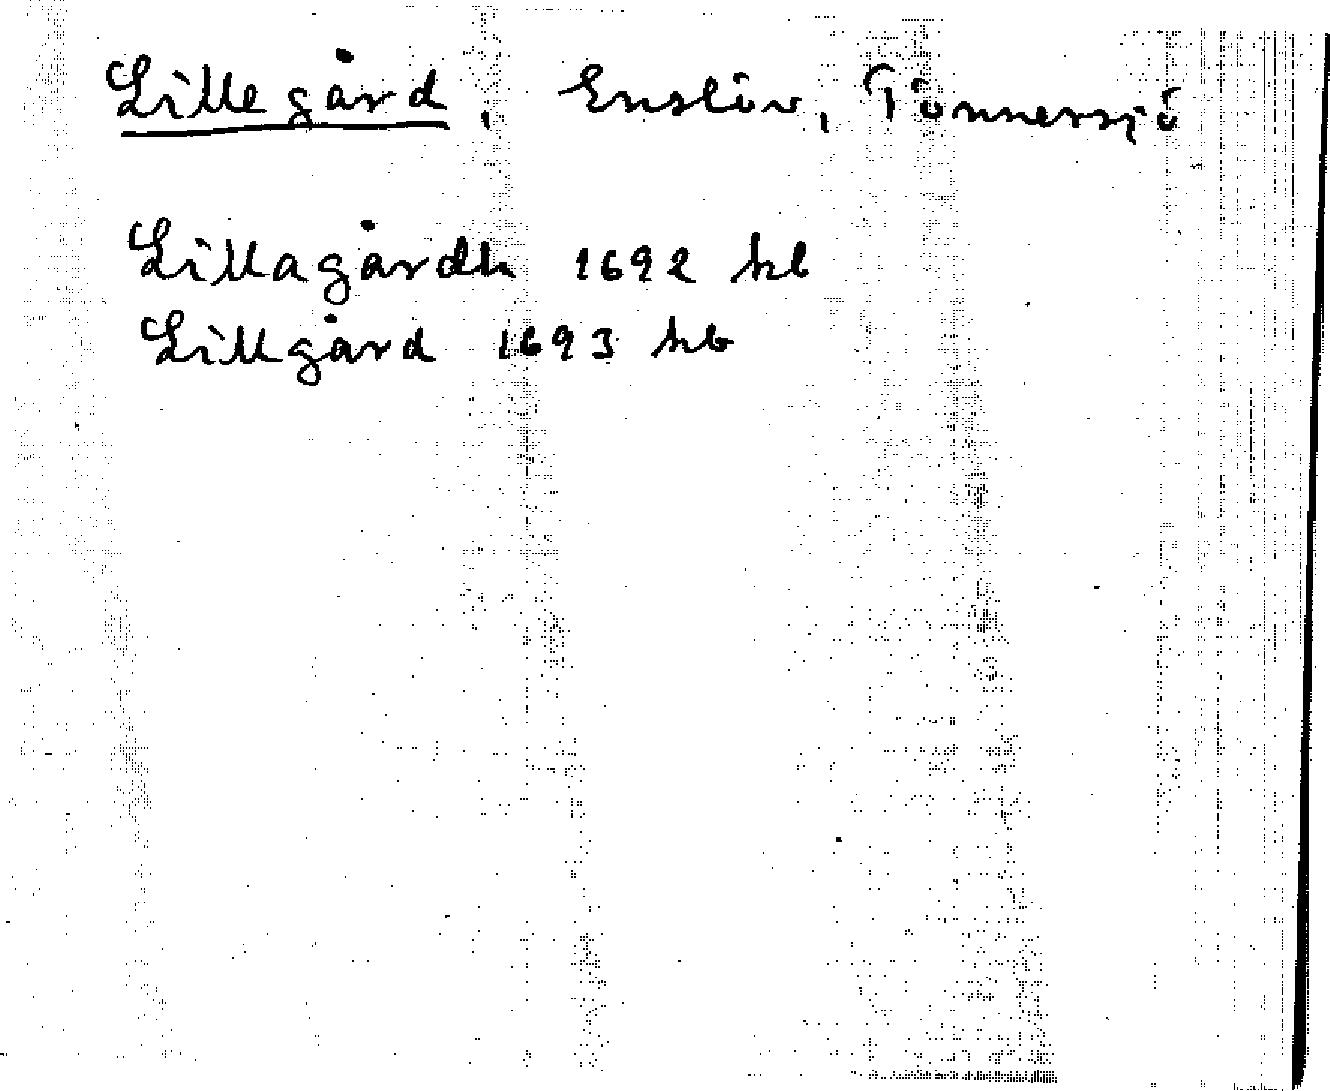 Lillegård, Enslöv, Tönnersjö
Lillagårdh 1692 kb
Lillgård 1693 kb